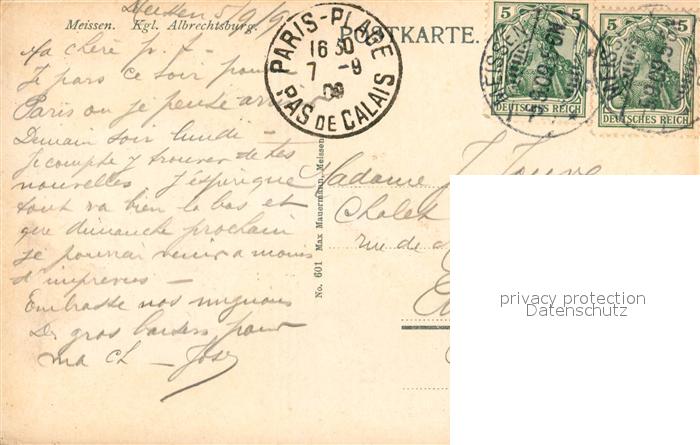 Meissen 5/9/9
Meissen. Kgl. Albrechtsburg.
POSTKARTE.
PARIS-PLAGE
16 30
7 -9
09
PAS DE CALAIS
5 5
DEUTSCHES REICH
5 5
DEUTSCHES REICH
MEISSEN
MEISSEN
Ma chère
Je pars ce soir pour
Paris ou je pense
Demain soir lundi -
Je compte y trouver de tes
nouvelles J'espère que
tout va bien la bas et
que dimanche prochain
je pourrai venir a moins
d'imprevus -
Embrasse nos mignons
De gros baisers pour
ma Ch -
No. 601 Max Mauermann, Meissen
Madame J.
Chalet
rue de
privacy protection
Datenschutz